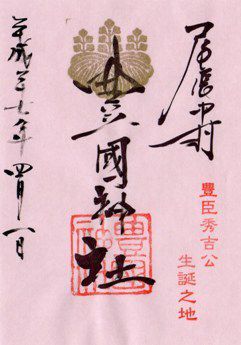 尾張中村
豐臣秀吉公
生誕之地
豊國神社
平成廿七年四月一日